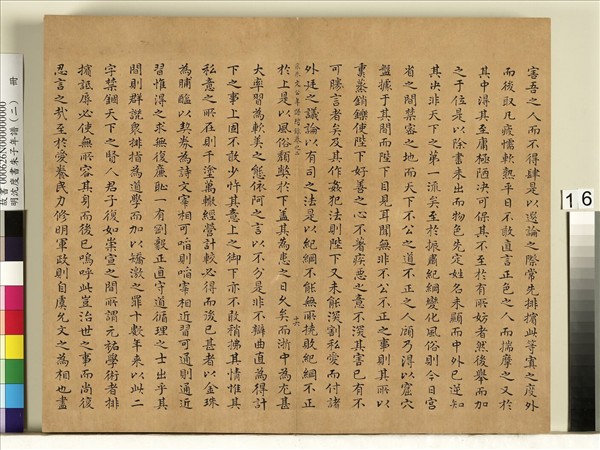 害吾之人而不得肆是以選論之際常先排擯此等寘之度外
而後取凡疲懦軟熟平日不敢直言正色之人而揣摩之又於
其中得其至庸極陋決可保其不至於有所妨者然後舉而加
之于位是以除書未出而物色先定姓名未顯而中外已逆知
其決非天下之第一流矣至於振肅紀綱變化風俗則今日宮
省之間禁密之地而天下不公之道不正之人顧乃得以窟穴
盤據于其間而陛下目見耳聞無非不公不正之事則其所以
熏蒸銷鑠使陛下好善之心不著疾惡之意不深其害已有不
可勝言者矣及其作姦犯法則陛下又未能深割私愛而付諸
外廷之議論以有司之法是以紀綱不能無所撓敗紀綱不正
文公年譜卷之三 十六
於上是以風俗頹弊于下蓋其為患之日久矣而浙中為尤甚
大率習為軟美之態依阿之言以不分是非不辯曲直為得計
下之事上固不敢少忤其意上之御下亦不敢稍拂其情惟其
私意之所在則千塗萬轍經營計較必得而後已甚者以金珠
為脯醢以契劵為詩文宰相可啗則啗宰相近習可通則通近
習惟得之求無復廉恥一有剛毅正直守道循理之士出乎其
間則群譏衆排指為道學而加以矯激之罪十數年來以此二
字禁錮天下之賢人君子復如崇宣之間所謂元祐學術者排
擯詆辱必使無所容其身而後已嗚呼此豈治世之事而尚復
忍言之哉至於愛養民力修明軍政則自虞允文之為相也盡
故書000626N000000000
明沈度書朱子年譜(二) 冊
16